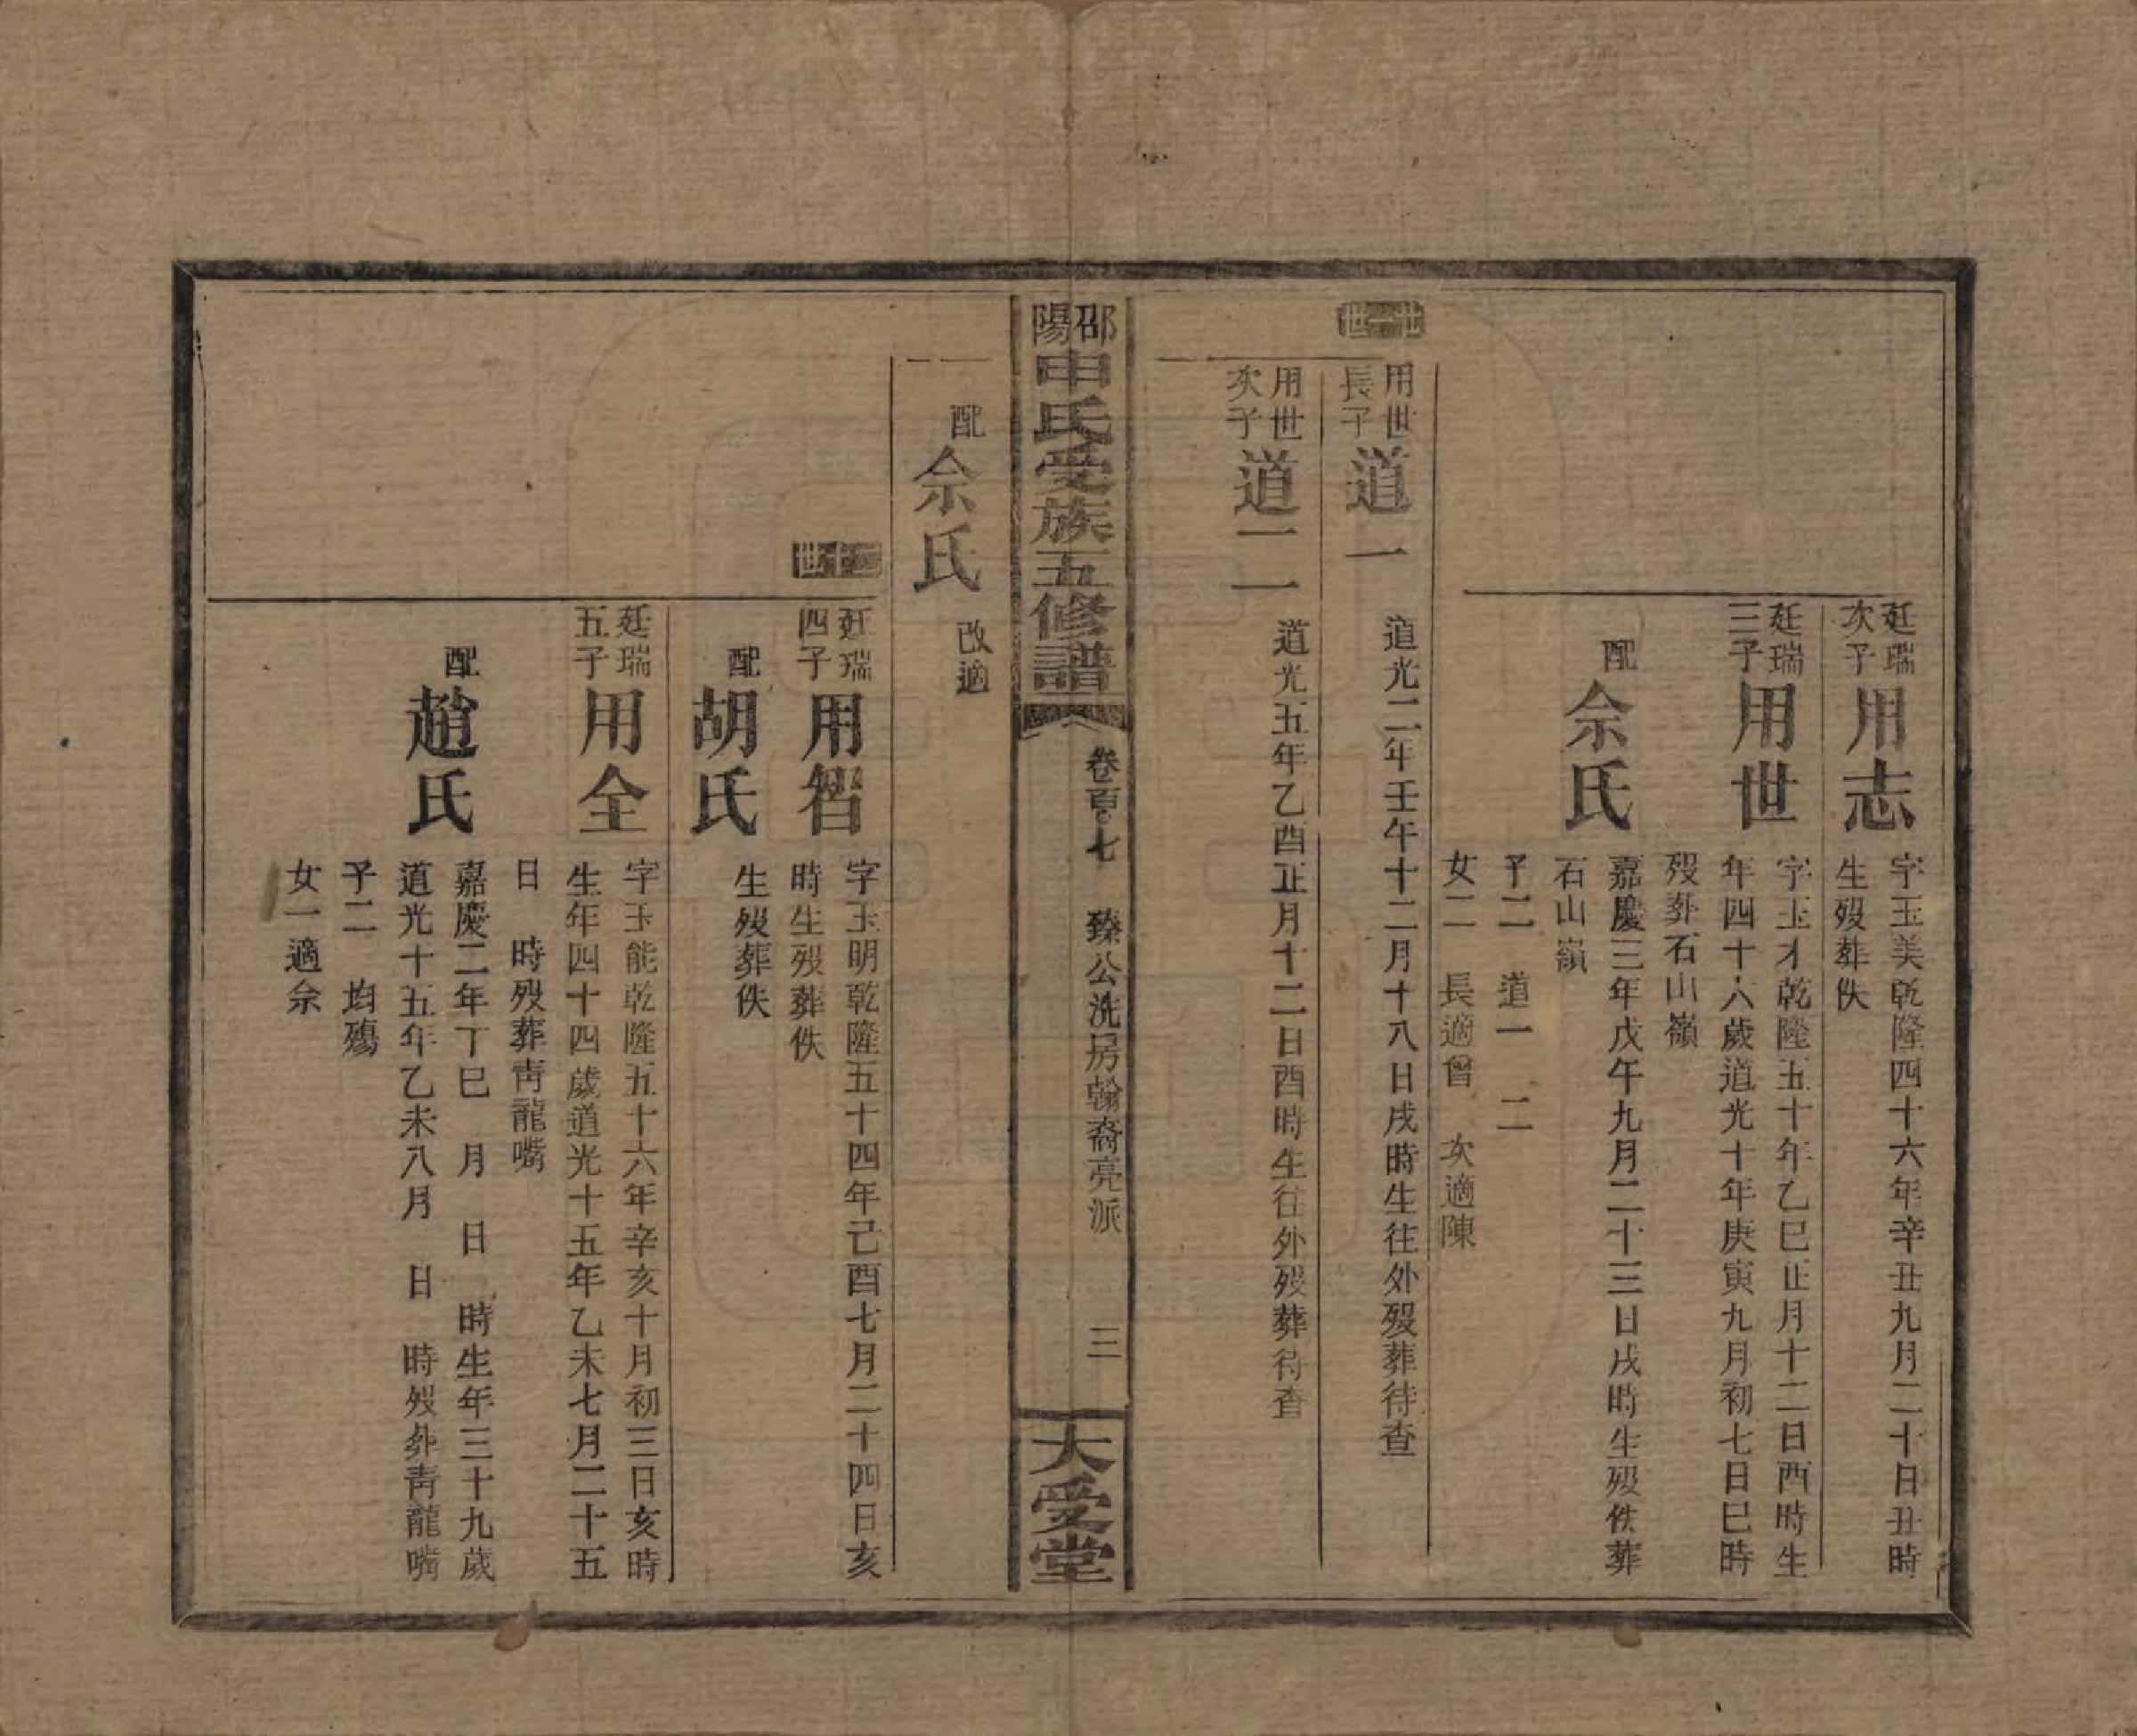 廷瑞
次子
用志
字玉美乾隆四十六年辛丑九月二十日丑時
生歿葬佚
廷瑞
三子
用世
字玉才乾隆五十年乙巳正月十二日酉時生
年四十六歲道光十年庚寅九月初七日巳時
歿葬石山嶺
配
佘氏
嘉慶三年戊午九月二十三日戌時生歿佚葬
石山嶺
子二　道一　二
女二　長適曾　次適陳
用世
長子
道一
道光二年壬午十二月十八日戌時生往外歿葬待查
用世
次子
道二
道光五年乙酉正月十二日酉時生往外歿葬待查
邵陽申氏受族五修譜
卷百〇七　臻公洗房翰裔亮派　三
大受堂
配
佘氏
改適
廷瑞
四子
用智
字玉明乾隆五十四年己酉七月二十四日亥
時生歿葬佚
配
胡氏
生歿葬佚
廷瑞
五子
用全
字玉能乾隆五十六年辛亥十月初三日亥時
生年四十四歲道光十五年乙未七月二十五
日　時歿葬靑龍嘴
配
趙氏
嘉慶二年丁巳　月　日　時生年三十九歲
道光十五年乙未八月　日　時歿葬靑龍嘴
子二　均殤
女一適佘